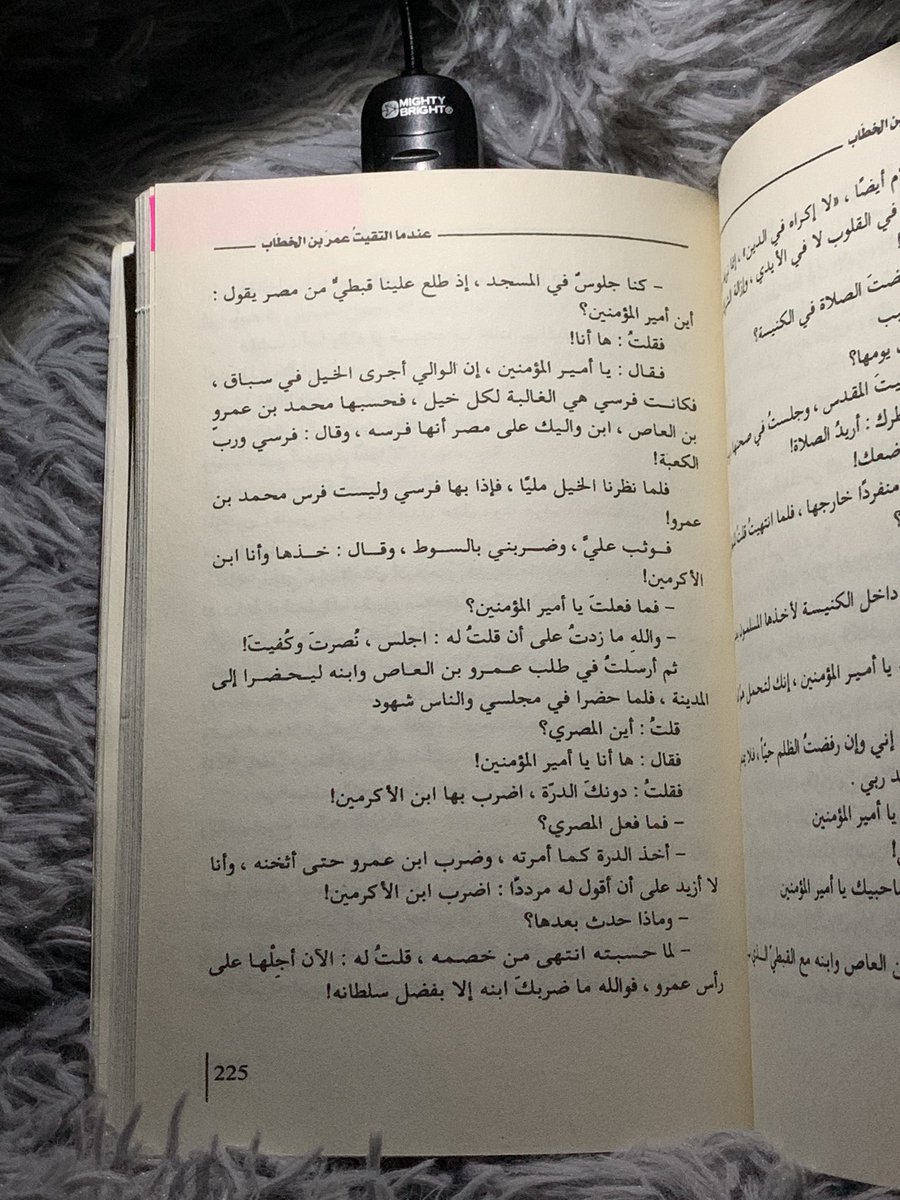 MIGHTY
BRIGHT®
ن الخطاب
م أيضًا ، «لا إكراه في الدين» ،
في القلوب لا في الأيدي ،
ضتَ الصلاة في الكنيسة؟
يب
، يومها؟
يتَ المقدس ، وجلستُ في
طرك : أريدُ الصلاة!
ضعك!
منفردًا خارجها ، فلما انتهيتُ قلتُ
؟
داخل الكنيسة لأخذها المسلمون
يا أمير المؤمنين ، إنك لتحمل
إني وإن رفضتُ الظلم حيًّا ،
ـد ربي .
يا أمير المؤمنين
!
ـاحبيك يا أمير المؤمنين
ن العاص وابنه مع القبطيّ الـذي
عندما التقيتُ عمرَ بن الخطّاب
- كنا جلوسٌ في المسجد ، إذ طلع علينا قبطيٌّ من مصر يقول :
أين أمير المؤمنين؟
فقلتُ : ها أنا!
فقال : يا أمير المؤمنين ، إن الوالي أجرى الخيل في سباق ،
فكانت فرسي هي الغالبة لكل خيل ، فحسبها محمد بن عمرو
بن العاص ، ابن واليك على مصر أنها فرسه ، وقال : فرسي وربّ
الكعبة!
فلما نظرنا الخيل مليًّا ، فإذا بها فرسي وليست فرس محمد بن
عمرو!
فوثب عليَّ ، وضربني بالسوط ، وقال : خذها وأنا ابن
الأكرمين!
- فما فعلتَ يا أمير المؤمنين؟
- واللهِ ما زدتُ على أن قلتُ له : اجلس ، نُصرتَ وكُفيتَ!
ثم أرسلتُ في طلب عمرو بن العاص وابنه ليحضرا إلى
المدينة ، فلما حضرا في مجلسي والناس شهود
قلتُ : أين المصري؟
فقال : ها أنا يا أمير المؤمنين!
فقلتُ : دونكَ الدرّة ، اضرب بها ابن الأكرمين!
- فما فعل المصري؟
- أخذ الدرة كما أمرته ، وضرب ابن عمرو حتى أثخنه ، وأنا
لا أزيد على أن أقول له مرددًا : اضرب ابن الأكرمين!
- وماذا حدث بعدها؟
- لما حسبته انتهى من خصمه ، قلتُ له : الآن أجِلْها على
رأس عمرو ، فوالله ما ضربكَ ابنه إلا بفضل سلطانه!
225